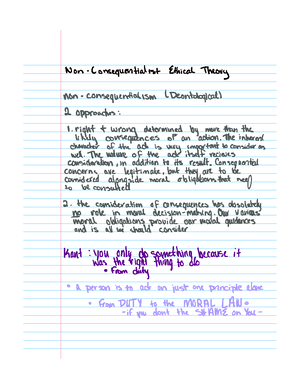 Non-Consequentialist Ethical Theory
non-consequentialism (Deontological)
2 approaches:
1. right + wrong determined by more than the
likely consequences of an action. The inherent
character of the act is very important to consider as
well. The nature of the act itself recieves
consideration, in addition to its result. Consequential
concerns are legitimate, but they are to be
considered alongside moral obligations that need
to be consulted
2. the consideration of consequences has absolutely
no role in moral decision-making. Our various
moral obligations provide our moral guidances
and is all we should consider
Kant: you only do something because it
was the right thing to do
• From duty
* A person is to act on just one principle alone
• From DUTY to the MORAL LAW •
- if you dont the SHAME on You -